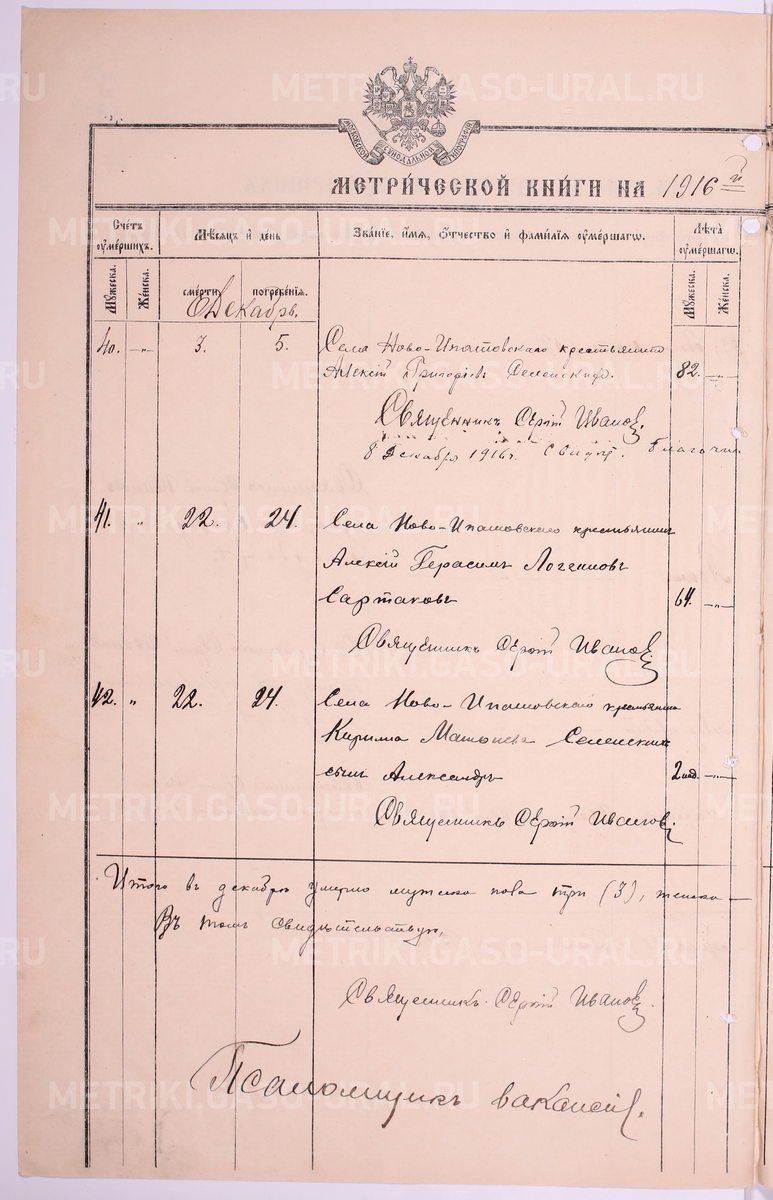 МОСКОВСКОЙ СѴНОДАЛЬНОЙ ТИПОГРАФІИ
МЕТРИ́ЧЕСКОЙ КНИ́ГИ НА 1916 й
Сче́тъ ᲂу҆ме́ршихъ.
Мѣ́сяцъ и҆ де́нь
Зва́нїе, и҆́мя, ѻ҆́тчество и҆ фамѝлїя ᲂу҆ме́ршагѡ.
Лѣ́та ᲂу҆ме́ршагѡ.
Мꙋ́жеска.
Же́нска.
сме́рти
погребе́нїя.
Мꙋ́жеска.
Же́нска.
Декабрь.
40. -„- 3. 5. Села Ново-Ипатовскаго крестьянинъ
Алексій Григоріевъ Селенскихъ. 82. -„-
Священникъ Сергій Ивановъ.
8 Декабря 1916 г. Свидѣт. Благочин.
41. „ 22. 24. Села Ново-Ипатовскаго крестьянинъ
Алексій Герасимъ Логиновъ
Сартаковъ 64. -„-
Священникъ Сергій Ивановъ
42. „ 22. 24. Села Ново-Ипатовскаго крестьянина
Кирилла Матѳіева Селенскихъ
сынъ Александръ 2 нед. -„-
Священникъ Сергій Ивановъ
Итого въ декабрѣ умерло мужска пола три (3), женска —
Въ томъ свидѣтельствую,
Священникъ Сергій Ивановъ.
Псаломщикъ вакансія.
METRIKI.GASO-URAL.RU